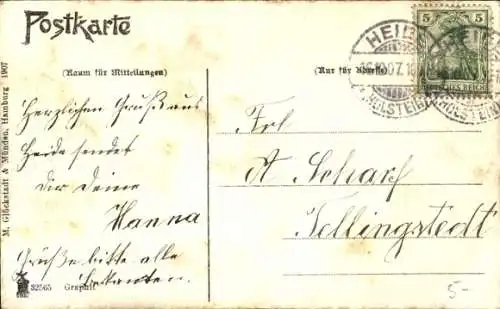 Postkarte
(Raum für Mitteilungen)
(Nur für Adresse)
5 5
HEIDE
HOLSTEIN
DEUTSCHES REICH
Herzlichen Gruß aus
Heide sendet
Dir Deine
Hanna
Grüße bitte alle
Bekannten.
Frl
A Scharf
Tellingstedt
M. Glückstadt & Münden, Hamburg 1907
32565 Graphit
5-